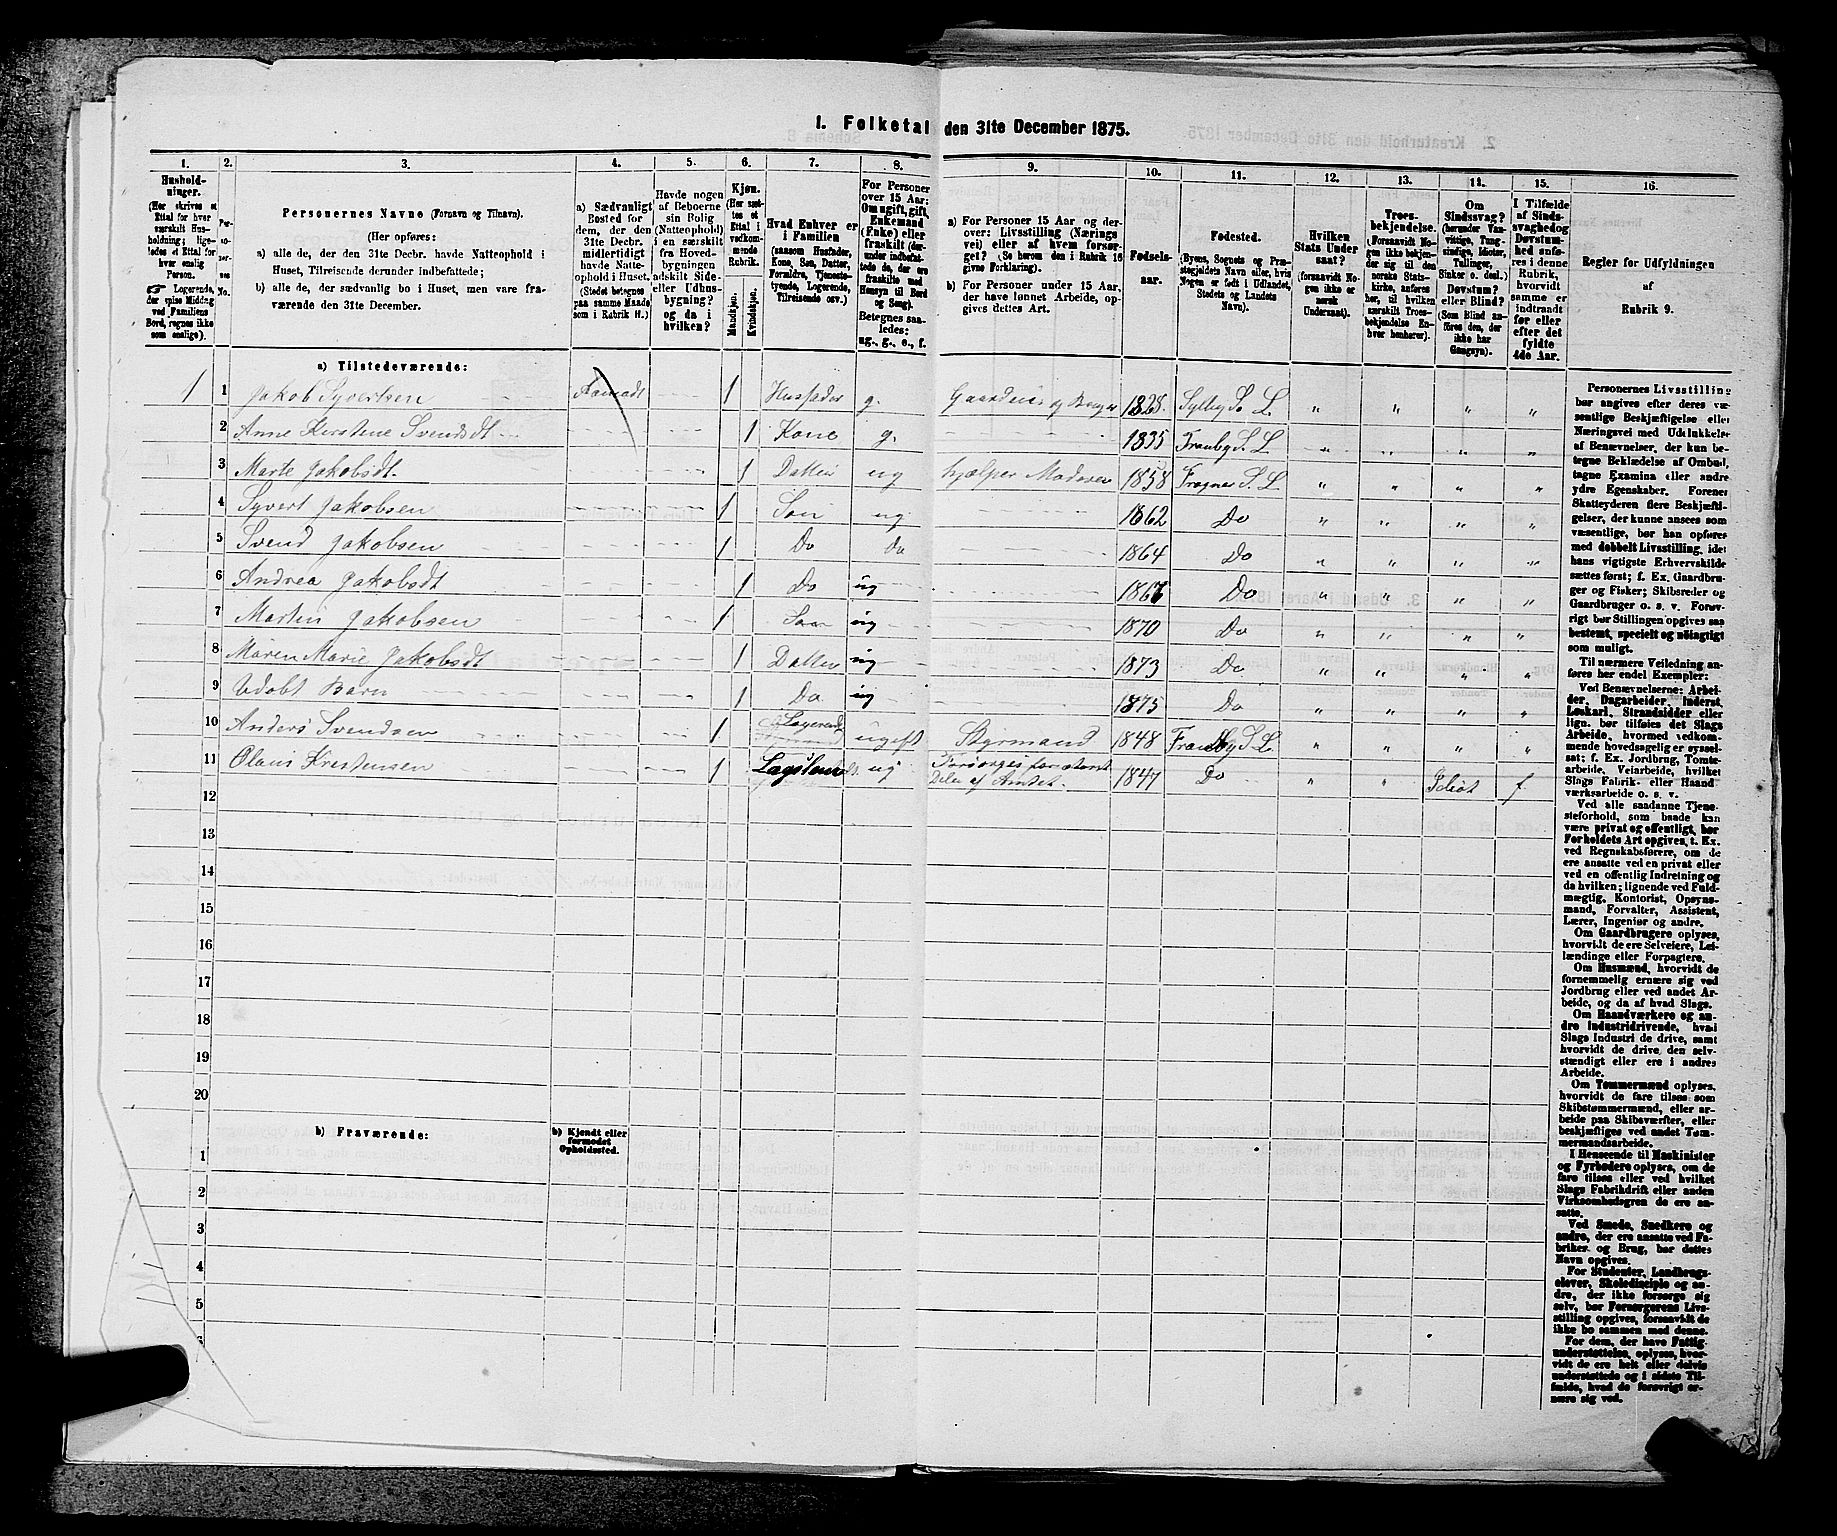 1. Folketal den 31te December 1875.
1. 2. 3. 4. 5. 6. 7. 8. 9. 10. 11. 12. 13. 14. 15. 16.
Hushold-
ninger.
(Her skrives et
Ettal for hver
særskilt Hus-
holdning; lige-
ledes et Ettal for
hver enslig
Person.
☞ Logerende,
der spise Middag
ved Familiens
Bord, regnes ikke
som enslige).
Per-
so-
ner-
nes
No.
Personernes Navne (Fornavn og Tilnavn).
(Her opføres:
a) alle de, der den 31te Decbr. havde Natteophold i
Huset, Tilreisende derunder indbefattede;
b) alle de, der sædvanlig bo i Huset, men vare fra-
værende den 31te December.
a) Sædvanligt
Bosted for
dem, der den
31te Decbr.
midlertidigt
havde Natte-
ophold i Huset.
(Stedet betegnes
paa samme Maade
som i Rubrik 11.)
Havde nogen
af Beboerne
sin Bolig
(Natteophold)
i en særskilt
fra Hoved-
bygningen
adskilt Side-
eller Udhus-
bygning?
og da i
hvilken?
Kjøn.
(Her sæt-
tes et
Ettal i
vedkom-
mende
Rubrik.
Mandkjøn.
Kvindekjøn.
Hvad Enhver er
i Familien
(saasom Husfader,
Kone, Søn, Datter,
Forældre, Tjeneste-
tyende, Logerende,
Tilreisende osv.)
For Personer
over 15 Aar:
Om ugift, gift,
Enkemand
(Enke) eller
fraskilt (der-
under indbefat-
tede de, der ere
fraskilte med
Hensyn til Bord
og Seng).
Betegnes saa-
ledes:
ug., g., e., f.
a) For Personer 15 Aar og der-
over: Livsstilling (Nærings
vei) eller af hvem forsør-
get? (Se herom den i Rubrik 16
givne Forklaring).
b) For Personer under 15 Aar,
der have lønnet Arbeide, op-
gives dettes Art.
Fødsels-
aar.
Fødested.
(Byens, Sognets og Præ-
stegjeldets Navn eller, hvis
Nogen er født i Udlandet,
Stedets og Landets
Navn).
Hvilken
Stats Under
saat?
(forsaavidt No-
gen ikke er
norsk
Undersaat).
Troes-
bekjendelse.
(Forsaavidt No-
gen ikke bekjen-
der sig til den
norske Stats-
kirke, anføres
her, til hvilken
særskilt Troes-
bekjendelse En-
hver henhører).
Om
Sindssvag?
(herunder Van-
vittige, Tung-
sindige, Idioter,
Tullinger,
Sinker o. desl.)
Døvstum?
eller Blind?
(Som Blind an-
føres den, der
ikke har
Gangsyn).
I Tilfælde
af Sinds-
svaghed og
Døvstum-
hed anfø-
res i denne
Rubrik,
hvorvidt
samme er
indtraadt
før eller
efter det
fyldte
4de Aar.
Regler for Udfyldningen
af
Rubrik 9.
a) Tilstedeværende:
1 1 Jakob Syvertsen 1 Husfader g. 1828. L. " " " "
2 Anne Kirstine Svendsdt 1 Kone g. 1835 Frauby S. L. " " " "
3 Marte Jakobsdt. 1 Datter ug hjælper Moderen 1858 Frogner S. L " " " "
4 Syvert Jakobsen 1 Søn ug 1862 Do " " " "
5 Svend Jakobsen 1 Do Do 1864 Do " " " "
6 Andrea Jakobsdt 1 Do ug Do " " " "
7 Martin Jakobsen 1 Søn ug 1870 Do " " " "
8 Maren Marie Jakobsdt 1 Datter ug 1873 Do " " " "
9 Udøbt Barn 1 Do ug 1875 Do " " " "
10 Anders Svendsen 1 Logerende ugift Styrmand 1848 S. L. " " " "
11 Olaus Krestensen 1 ug Forsørges for største
Delen af Amtet. 1847 Do " " Idiot f
12
13
14
15
16
17
18
19
20
b) Fraværende:
b) Kjendt eller
formodet
Opholdssted.
1
2
3
4
5
6
Personernes Livsstilling
bør angives efter deres væ-
sentlige Beskjæftigelse eller
Næringsvei med Udelukkelse
af Benævnelser, der kun be-
tegne Beklædelse af Ombud,
tagne Examina eller andre
ydre Egenskaber. Forener
Skatteyderen flere Beskjæfti-
gelser, der kunne ansees som
væsentlige, bør han opføres
med dobbelt Livsstilling, idet
hans vigtigste Erhvervskilde
sættes først; f. Ex. Gaardbru-
ger og Fisker; Skibsreder og
Gaardbruger o. s. v. Forøv-
rigt bør Stillingen opgives saa
bestemt, specielt og nøiagtigt
som muligt.
Til nærmere Veiledning an-
føres her endel Exempler:
Ved Benævnelserne: Arbei-
der, Dagarbeider, Inderst,
Løskarl, Strandsidder eller
lign. bør tilføies det Slags
Arbeide, hvormed vedkom-
mende hovedsagelig er syssel-
sat; f. Ex. Jordbrug, Tomte-
arbeide, Veiarbeide, hvilket
Slags Fabrik- eller Haand
værksarbeide o. s. v.
Ved alle saadanne Tjene-
steforhold, som baade kan
være privat og offentligt, bør
Forholdets Art opgives, t. Ex.
ved Regnskabsførere, om de
ere ansatte ved en privat eller
ved en offentlig Indretning og
da hvilken; lignende ved Fuld-
mægtig, Kontorist, Opsyns-
mand, Forvalter, Assistent,
Lærer, Ingeniør og andre.
Om Gaardbrugere oplyses,
hvorvidt de ere Selveiere, Lei-
lændinge eller Forpagtere.
Om Husmænd, hvorvidt de
fornemmelig ernære sig ved
Jordbrug eller ved andet Ar-
beide, og da af hvad Slags.
Om Haandværkere og an-
dre Industridrivende, hvad
Slags Industri de drive, samt
hvorvidt de drive den selv-
stændigt eller ere i andres
Arbeide.
Om Tømmermænd oplyses,
hvorvidt de fare tilsøs som
Skibstømmermænd, eller ar-
beide paa Skibsværfter, eller
beskjæftiges ved andet Tøm-
mermandsarbeide.
I Henseende til Maskinister
og Fyrbødere oplyses, om de
fare tilsøs eller ved hvilket
Slags Fabrikdrift eller anden
Virksomhedsgren de ere an-
satte.
Ved Smede, Snedkere og
andre, der ere ansatte ved Fa-
briker og Brug, bør dettes
Navn opgives.
For Studenter, Landbrugs-
elever, Skoledisciple og an-
dre, der ikke forsørge sig
selv, bør Forsørgerens Livs-
stilling opgives, forsaavidt de
ikke bo sammen med denne.
For dem, der have Fattig-
understøttelse, oplyses, hvor-
vidt de ere helt eller delvis
understøttede og i sidste Til-
fælde, hvad de forøvrigt er-
nære sig ved.